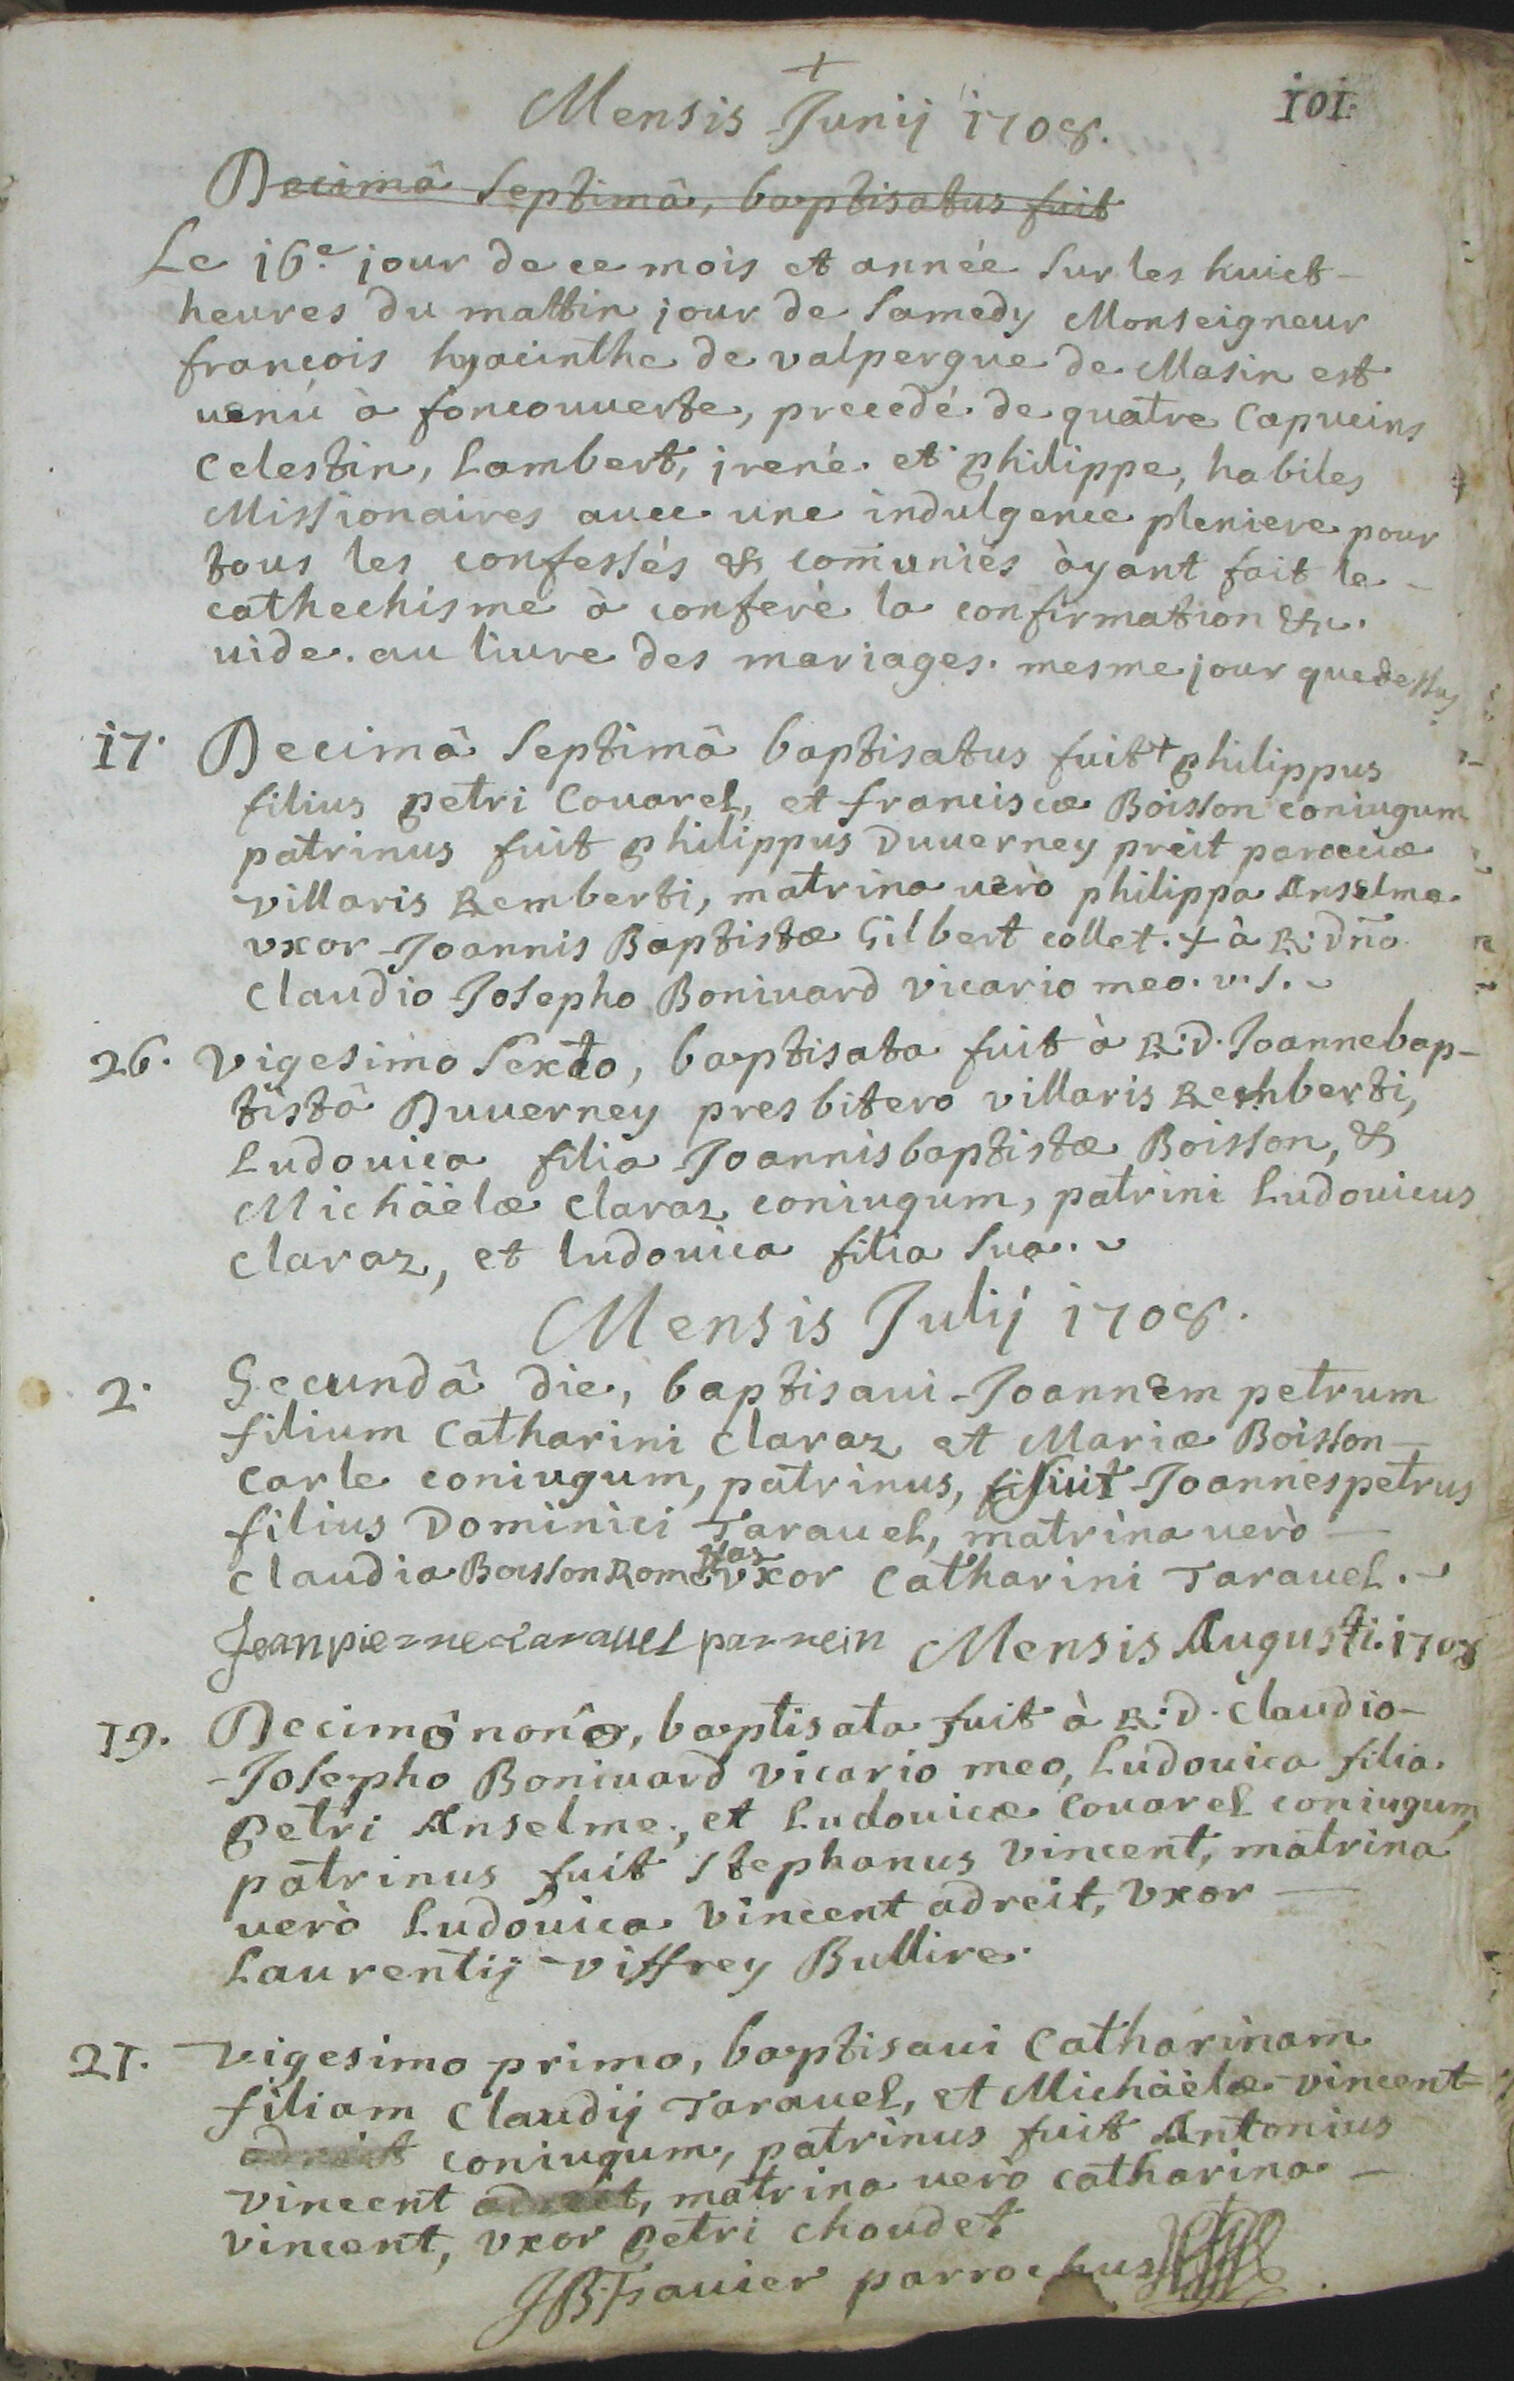 +
Mensis Junij 1708.
101.
Decimâ Septimâ, baptisatus fuit
Le 16.e jour de ce mois et année Sur les huict
heures du mattin jour de Samedy Monseigneur
francois hyacinthe de valpergue de Masin est
uenú à foncouuerte, precedé de quatre Capucins
Celestin, Lambert, irené et philippe, habiles
Missionaires auec une indulgence pleniere pour
tous les confessés & com̄uniés àyant fait le
cathechisme à conferè la confirmation &c.
uide. au liure des mariages. mesme jour quedessus
17. Decimâ Septimâ baptisatus fuit + philippus
filius petri Couarel, et franciscæ Boisson coniugum
patrinus fuit philippus Duuerney preit parociæ
villaris Remberti, matrina uerò philippa Anselme
vxor Joannis Baptistæ Gilbert collet. + à R: Dño
Claudio Josepho Boniuard vicario meo. v. s.
26. Vigesimo Sexto, baptisata fuit à R: D. Joannebap-
tistâ Duuerney presbitero villaris Remberti,
Ludouica filia Joannisbaptistæ Boisson, &
Michäelæ Claraz coniugum, patrini Ludouicus
Claraz, et ludouica filia Sua.
Mensis Julij 1708.
2. Secundâ die, baptisaui Joannem petrum
filium Catharini Claraz et Mariæ Boisson
Carle coniugum, patrinus, fuit Joannespetrus
filius Dominici Tarauel, matrina uerò
Claudia Boisson Rome vxor Catharini Tarauel.
Jean pierre tarauel parrein Mensis Augusti. 1708
19. Decimô nonô, baptisata fuit à R: D. Claudio-
Josepho Boniuard vicario meo, Ludouica filia
Petri Anselme, et Ludouicæ Couarel coniugum,
patrinus fuit Stephanus Vincent, matrina
uerò Ludouica Vincent adreit, Vxor
Laurentij Viffrey Bullire.
21. Vigesimo primo, baptisaui Catharinam
filiam Claudij Tarauel, et Michäelæ Vincent
adreit coniugum, patrinus fuit Antonius
Vincent adreit, matrina uerò catharina
Vincent, Vxor Petri Choudet
JB. Frauier parrochus